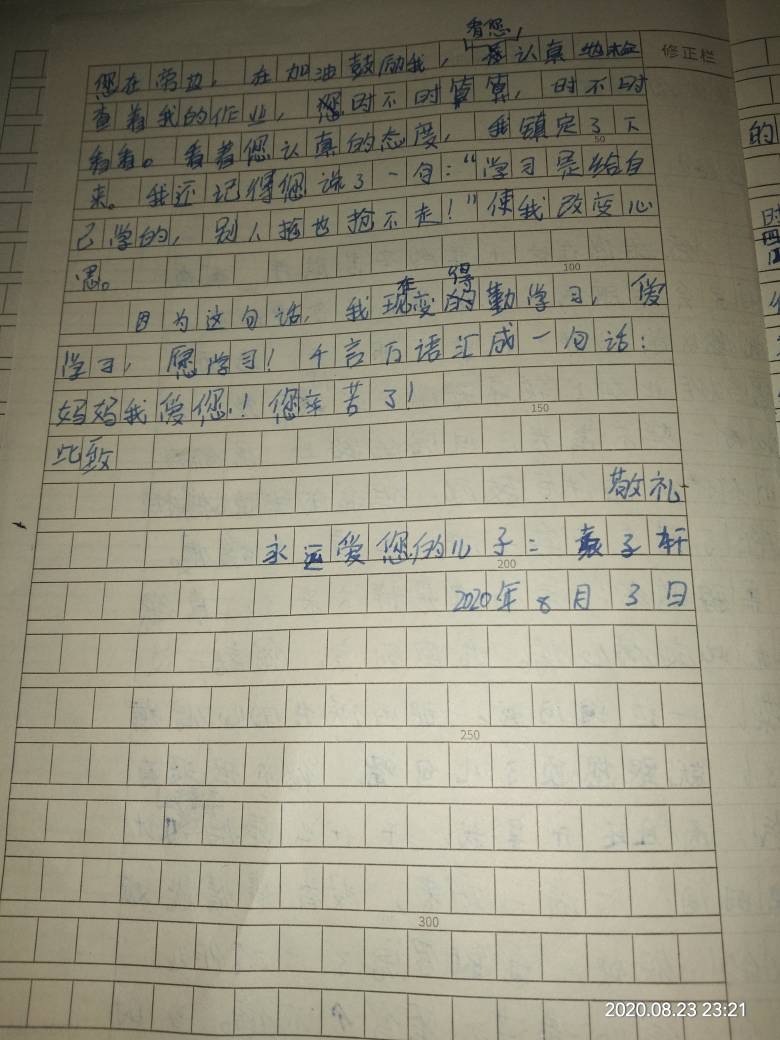 看您，
您在旁边，在加油鼓励我，是认真地检
修正栏
查着我的作业，您时不时算算，时不时
看看。看着您认真的态度，我镇定了下
50
来。我还记得您说了一句：“学习是给自
己学的，别人抢也抢不走！”使我改变心
思。
100
在 得
因为这句话，我现变的勤学习，爱
学习，愿学习！千言万语汇成一句话：
妈妈我爱您！您辛苦了！
150
此致
敬礼
永远爱您的儿子：袁子轩
200
2020年8月3日
250
300
的
时
2020.08.23 23:21